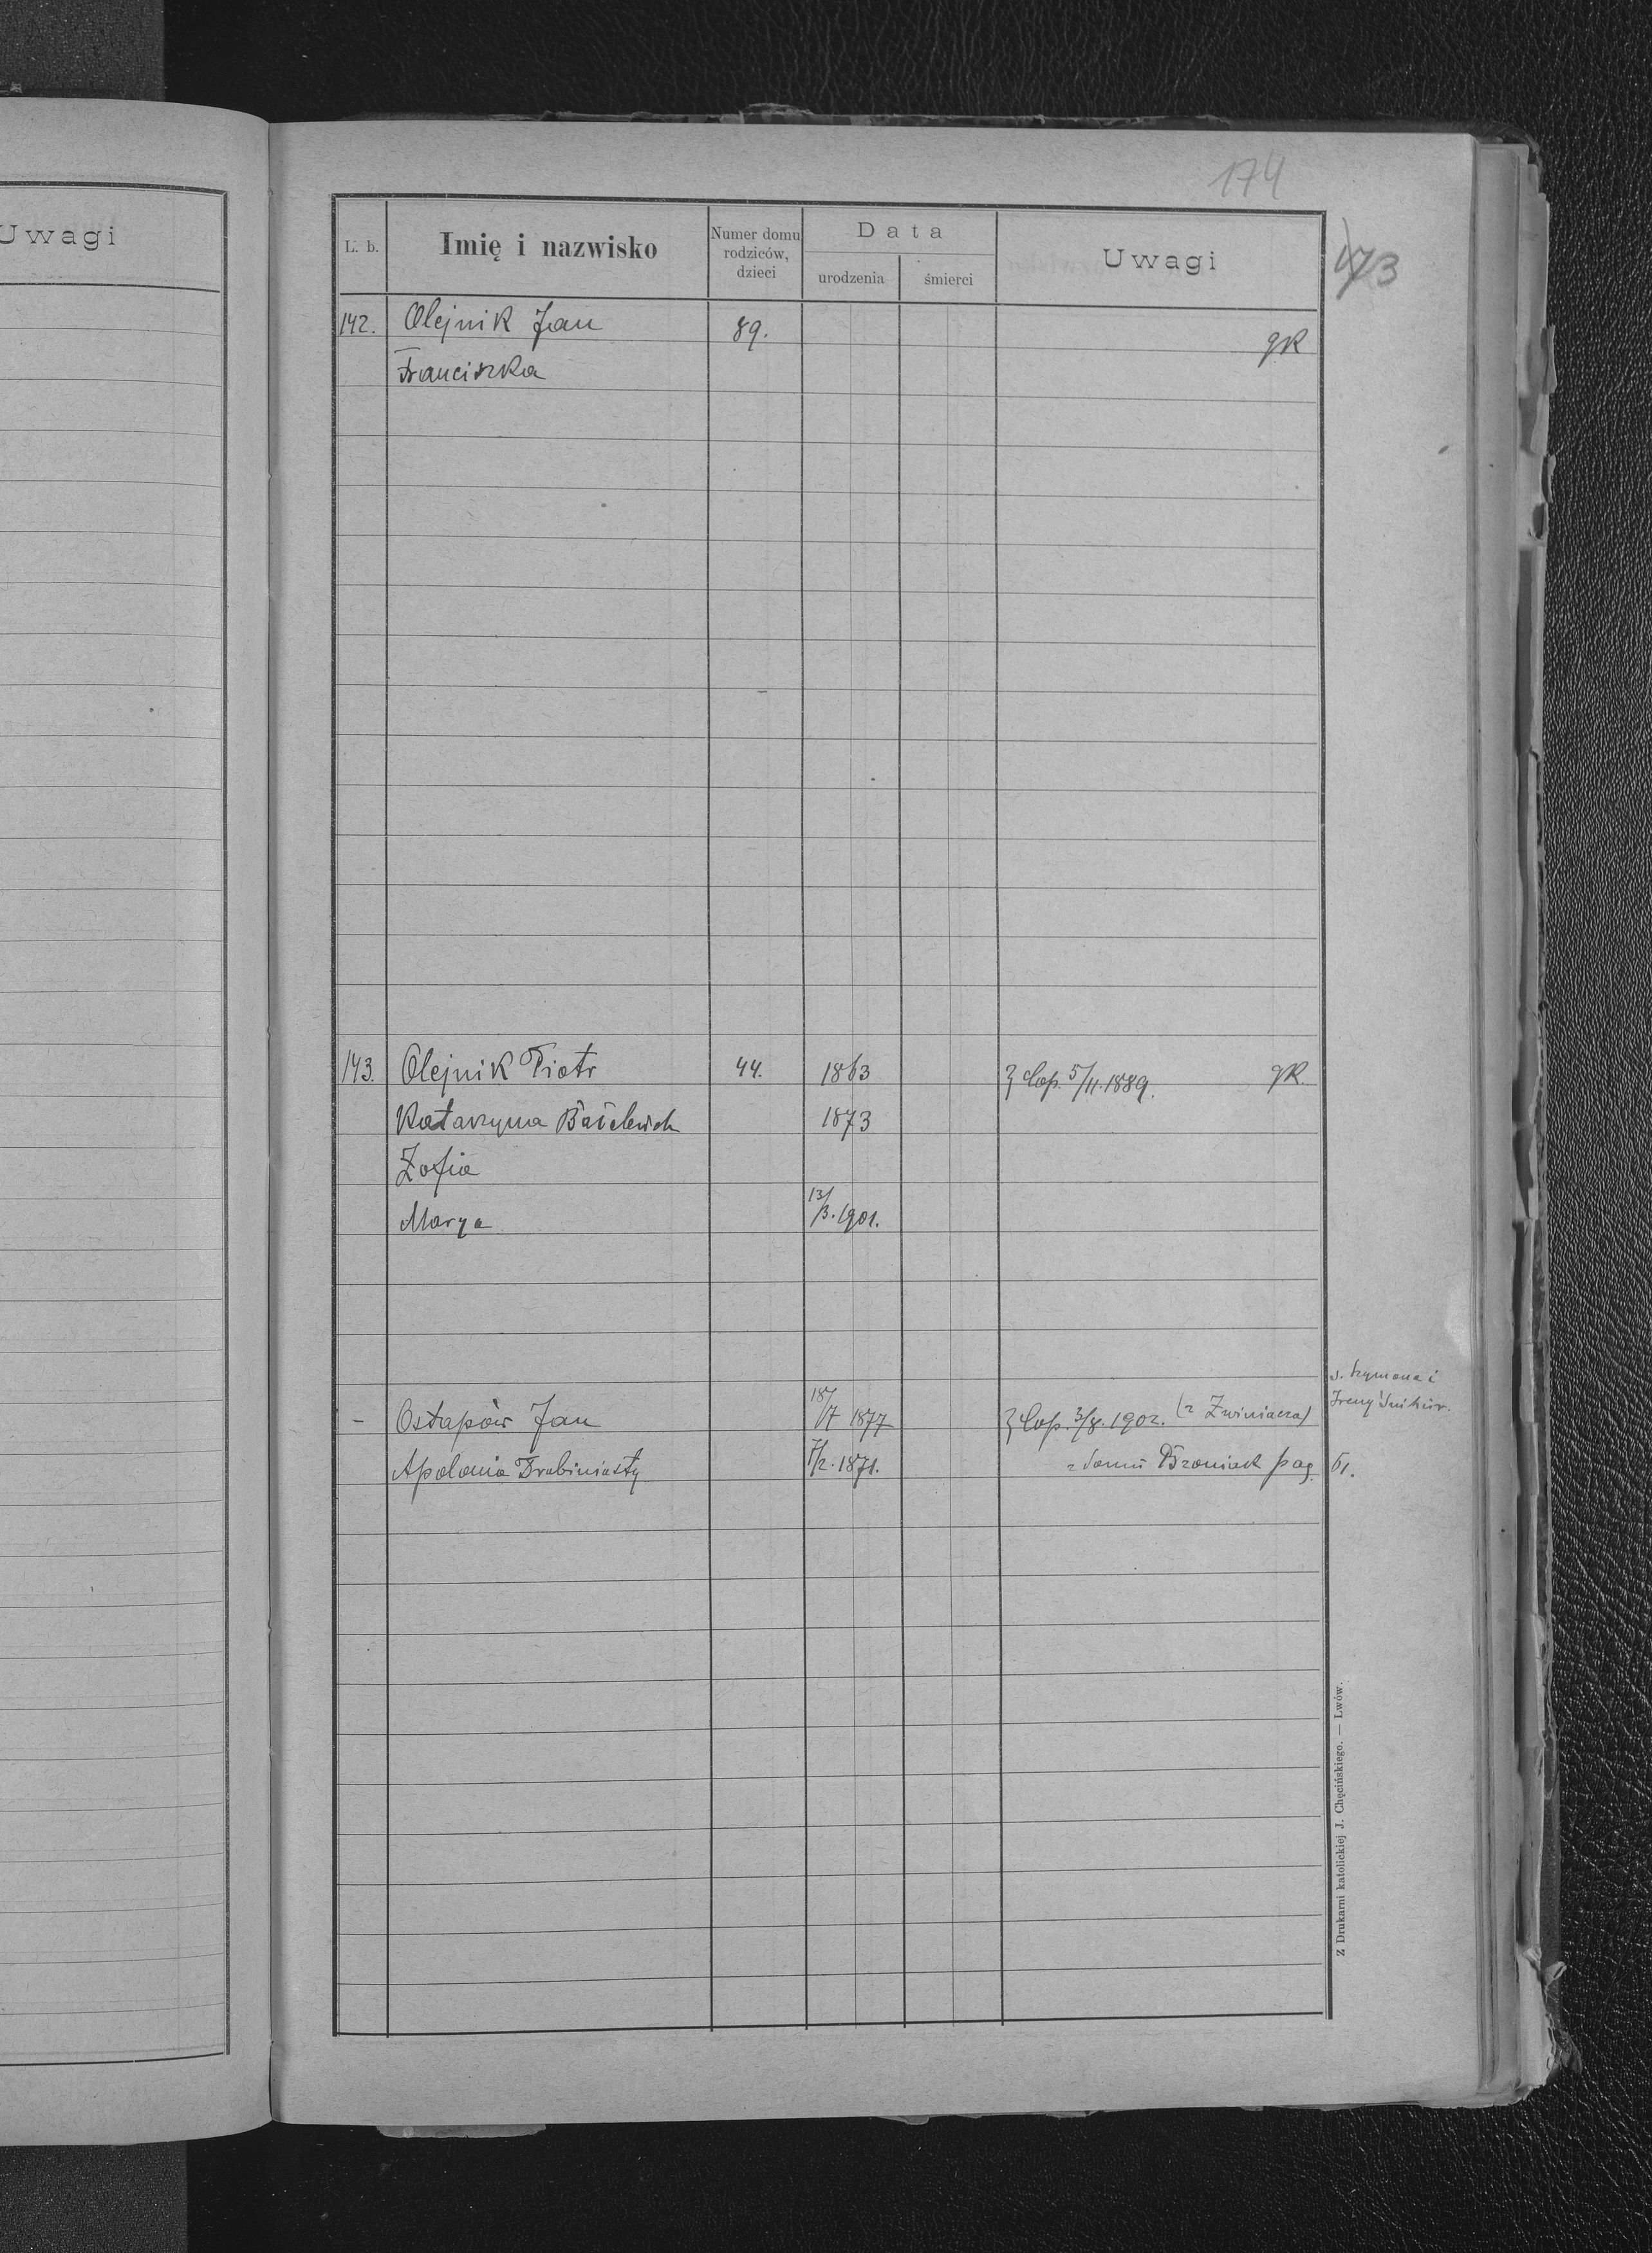 Uwagi
174
173
L. b.
Imię i nazwisko
Numer domu rodziców, dzieci
Data
urodzenia
śmierci
Uwagi
142. Olejnik Jan 89. gk
Franciszka
143. Olejnik Piotr 44. 1863 Cop. 5/11. 1889. gk.
Katarzyna 1873
Zofia
Marya 13/3. 1901.
s. Szymona i
Ireny
- Ostapów Jan 18/7 1877 Cop. 3/8. 1902. (z Zwiniacza)
Apolonia Drabiniasty 7/2. 1871. z domu Broniack pag. 61.
Z Drukarni katolickiej J. Chęcińskiego. — Lwów.